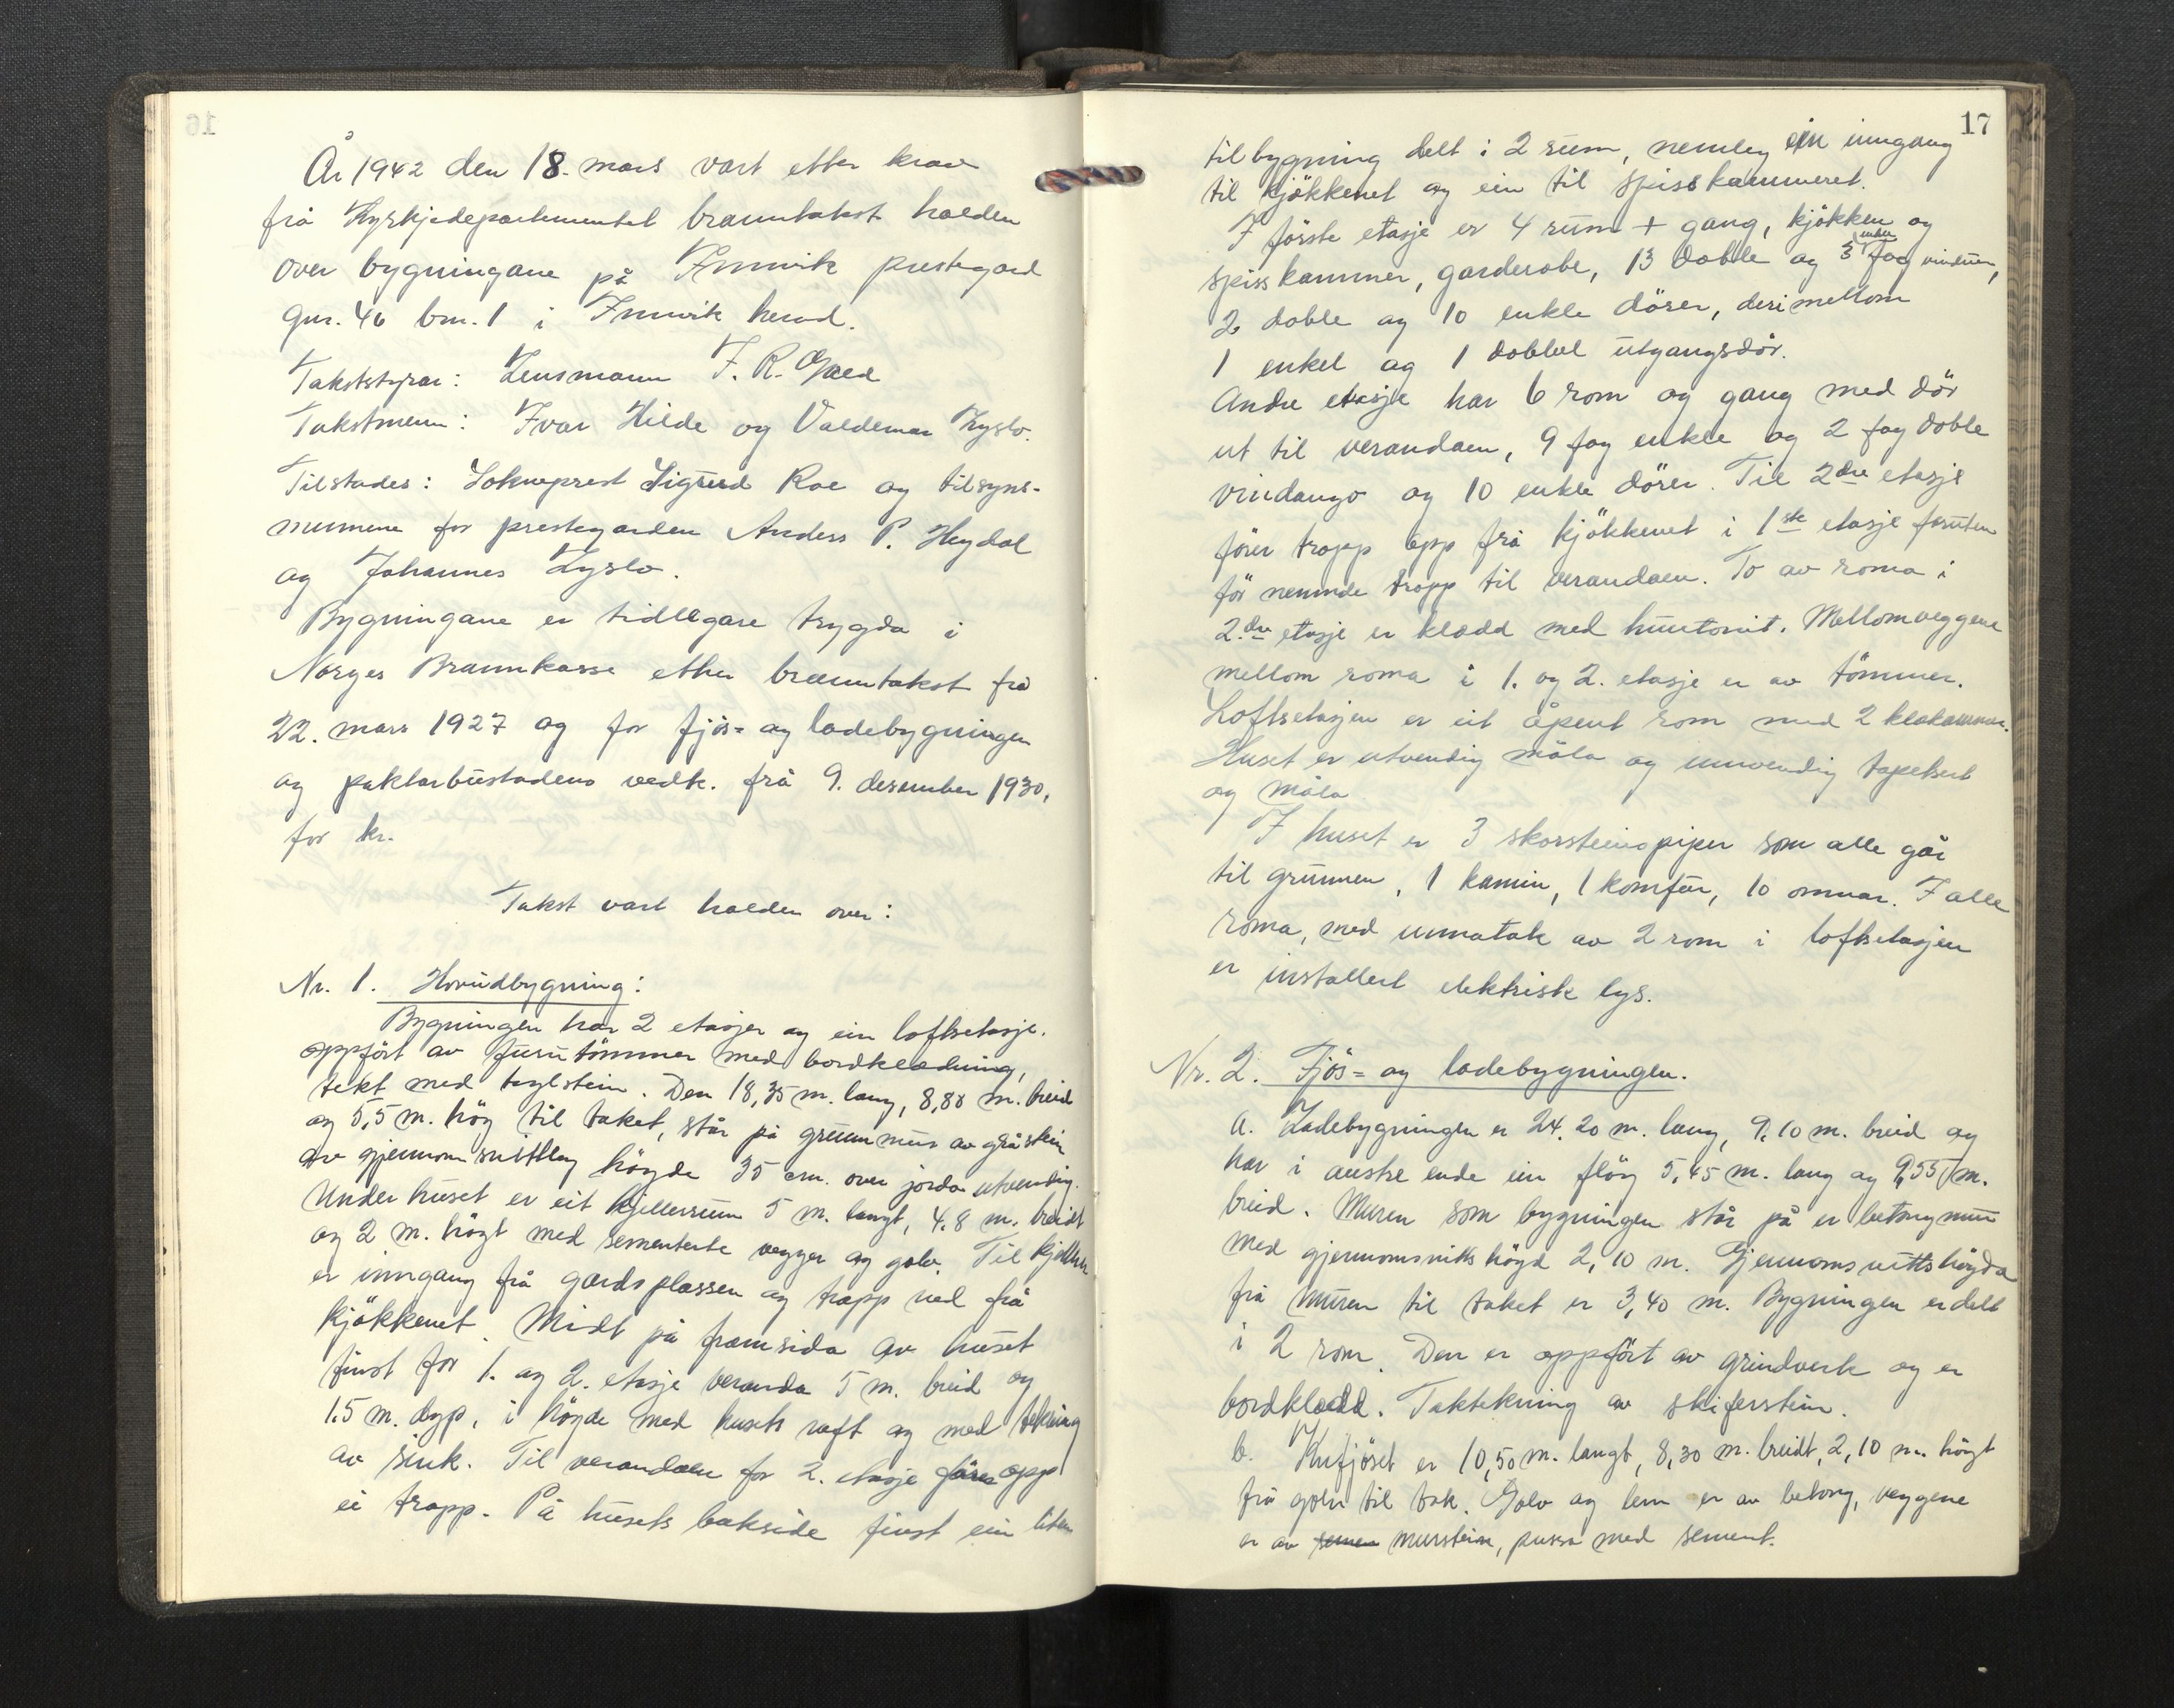 16
År 1942 den 18. mars vart etter krav
frå Kyrkjedepartementet branntakst halden
over bygningane på Innvik prestegard
gnr. 46 bnr. 1 i Innvik herad.
Takststyrar: Lensmann J. R.
Takstmenn: Ivar Hilde og Valdemar Lyslo.
Tilstades: Sokneprest Sigurd Roe og tilsyns-
mennene for prestegarden Anders P. Heggdal
og Johannes Lyslo.
Bygningane er tidlegare trygda i
Norges Brannkasse etter branntakst frå
22. mars 1927 og for fjös= og ladebygningen
og paktarbustadens vedk. frå 9. desember 1930,
for kr.
Takst vart halden over:
Nr. 1. Hovudbygning:
Bygningen har 2 etasjer og ein loftsetasje.
oppfört av furutömmer med bordklædning,
tekt med teglstein. Den 18,35 m. lang, 8,88 m. breid
og 5,5 m. hög til taket, står på grunnmur av gråstein
av gjennomsnittleg högde 35 cm. over jorda utvendig.
Under huset er eit kjellerrum 5 m. langt, 4.8 m. breidt
og 2 m. högt med sementerte vegger og golv. Til kjelleren
er inngang frå gardsplassen og trapp ned frå
kjökkenet. Midt på framsida av huset
finst for 1. og 2. etasje veranda 5 m. breid og
1.5 m. dyp, i högde med husets raft og med tekning
av sink. Til verandaen for 2. etasje förer opp
ei trapp. På husets bakside finst ein liten
17
tilbygning delt i 2 rum, nemleg ein inngang
til kjökkenet og ein til spisskammeret.
I förste etasje er 4 rum + gang, kjökken og
spisskammer, garderobe, 13 doble og 3 enkle fag vinduer,
2 doble og 10 enkle dörer, derimellom
1 enkel og 1 dobbel utgangsdör.
Andre etasje har 6 rom og gang med dör
ut til verandaen, 9 fag enkle og 2 fag doble
vindaugo og 10 enkle dörer. Til 2dre etasje
förer trapp opp frå kjökkenet i 1ste etasje foruten
för nemnde trapp til verandaen. To av roma i
2.dre etasje er klædd med huntonit. Mellomveggene
mellom roma i 1. og 2. etasje er av tömmer.
Loftsetasjen er eit åpent rom med 2
Huset er utvendig måla og innvendig tapetsert
og måla
I huset er 3 skorsteinspiper som alle går
til grunnen, 1 kamin, 1 komfur, 10 omnar. I alle
roma, med unnatak av 2 rom i loftsetasjen
er installert elektrisk lys.
Nr. 2. Fjös= og ladebygningen.
a. Ladebygningen er 24.20 m. lang, 9.10 m. breid og
har i austre ende ein flöy 5,45 m. lang og 9,55 m.
breid. Muren som bygningen står på er betongmur
med gjennomsnitts högd 2,10 m. Gjennomsnittshögda
frå muren til taket er 3,40 m. Bygningen er delt
i 2 rom. Den er oppfört av grindverk og er
bordklædd. Taktekning av skiferstein.
b. Kufjöset er 10,50 m. langt, 8,30 m. breidt, 2,10 m. högt
frå golv til tak. Golv og lem er av betong, veggene
er av murstein, pussa med sement.